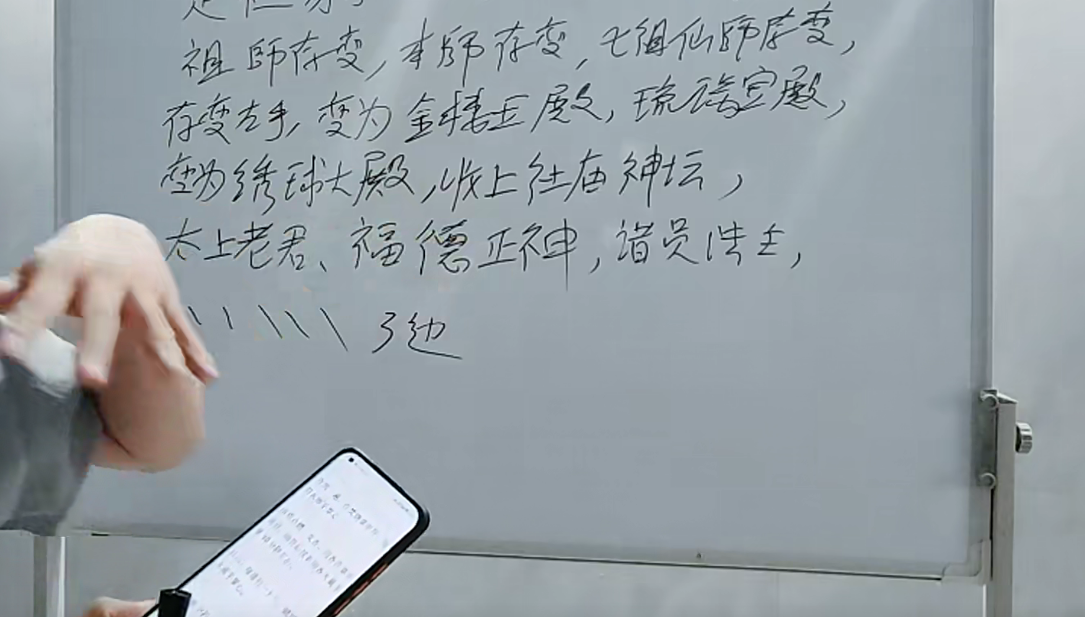 祖師存变,本師存变,七祖仙師存变,
存变左手,变为金楼玉殿,琉璃宝殿,
变为绣球大殿,收上社庙神坛,
太上老君、福德正神,诸员
\\\\\ 3边